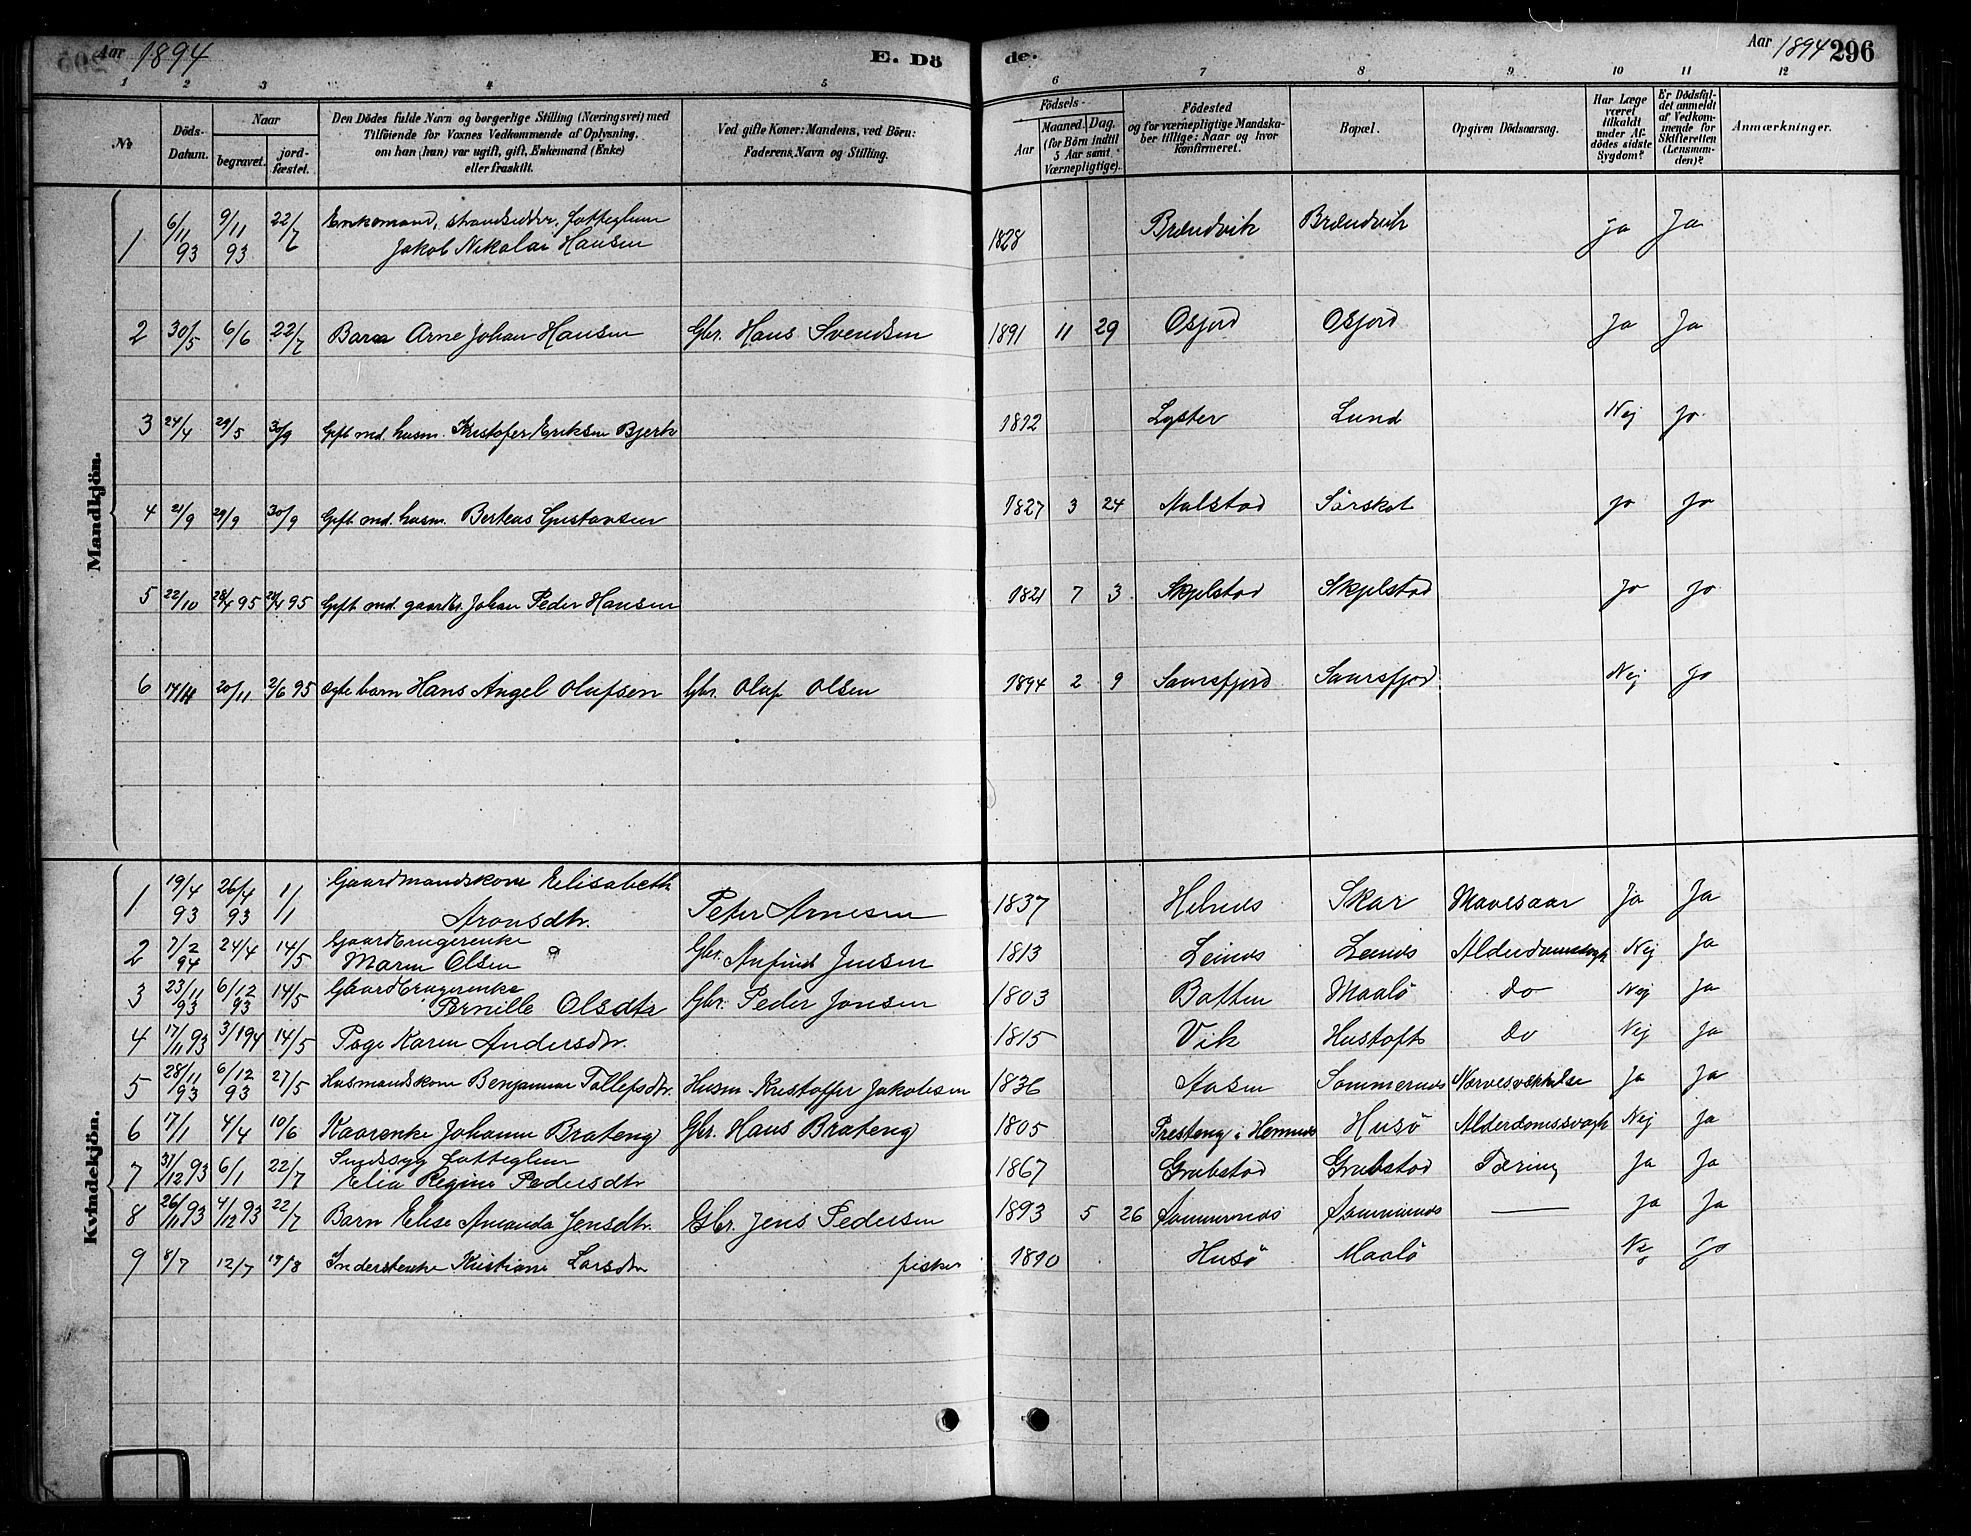 Aar 1894 E. Dö de. Aar 1894 296
1 2 3 4 5 6 7 8 9 10 11 12
No
Döds-Datum.
Naar
begravet.
jord-fæstet.
Den Dödes fulde Navn og borgerlige Stilling (Næringsvei) med
Tilföiende for Voxnes Vedkommende af Oplysning,
om han (hun) var ugift, gift, Enkemand (Enke)
eller fraskilt.
Ved gifte Koner: Mandens, ved Börn:
Faderens Navn og Stilling.
Födsels-
Aar
Maaned. Dag.
(for Börn indtil
5 Aar samt
Værnepligtige).
Födested
og for værnepligtige Mandska-
ber tillige: Naar og hvor
konfirmeret.
Bopæl.
Opgiven Dödsaarsag.
Har Læge
været
tilkaldt
under Af-
dödes sidste
Sygdom?
Er Dödsfal-
det anmeldt
af Vedkom-
mende for
Skifteretten
(Lensman-
den)?
Anmærkninger.
Mandkjön.
1 6/11 93 9/11 93 22/7 Enkemand, strandsidder, fatteglem
Jakob Nikolai Hansen 1828 Brændvik Brændvik Ja Ja
2 30/5 6/6 22/7 Barn Arne Johan Hansen Gbr. Hans Svendsen 1891 11 29 Osfjord Osfjord Ja Ja
3 24/4 29/5 30/9 Gift md. husm. Kristofer Eriksen Bjerk 1812 Lyster Lund Nej Jo
4 21/9 29/9 30/9 Gift md. husm. Berteus Gustavsen 1827 3 24 Aalstad Sörskot Jo Jo
5 22/10 28/4 95 28/4 95 Gift md. gaardbr. Johan Peder Hansen 1821 7 3 Skjelstad Skjelstad Jo Jo
6 14/11 20/11 2/6 95 Ægte barn Hans Angel Olufsen Gbr. Oluf Olsen 1894 2 9 Saursfjord Saursfjord Nej Jo
Kvindekjön.
1 19/4 93 26/4 93 1/1 Gaardmandskone Elisabeth
Aronsdtr. Peter Arnesen 1837 Helnes Skar Mavesaar Ja Ja
2 7/2 94 24/4 14/5 Gaardbrugerenke
Maren Olsen Gbr. Anfind Jensen 1813 Leines Leines Alderdomssvagh Nej Ja
3 23/11 93 6/12 93 14/5 Gaardbrugerenke
Pernille Olsdtr Gbr. Peder Jonsen 1803 Batten Maalö Do Nej Ja
4 17/11 93 3/1 94 14/5 Pige Karen Andersdtr. 1815 Vik Hustoft Do Nej Ja
5 28/11 93 6/12 93 27/5 Husmandskone Benjamine Tollefsdtr. Husm. Kristoffer Jakobsen 1836 Aasen Sommernes Ja Ja
6 17/1 4/4 10/6 Kaarenke Johanna Brateng Gbr. Hans Brateng 1805 Presteng i Hemnes Husö Alderdomssvagh Nej Ja
7 31/12 93 6/1 22/7 Sindssyg fatteglem
Elia Regine Pedersdtr 1867 Grubstad Grubstad Tæring Ja Ja
8 26/11 93 4/12 93 22/7 Barn Elise Amanda Jensdtr. Gbr. Jens Pedersen 1893 5 26 Sommernes Sommernes — Ja Ja
9 8/7 12/7 19/8 Inderstenke Kristiane Larsdtr fisker 1810 Husö Maalö Nej Jo